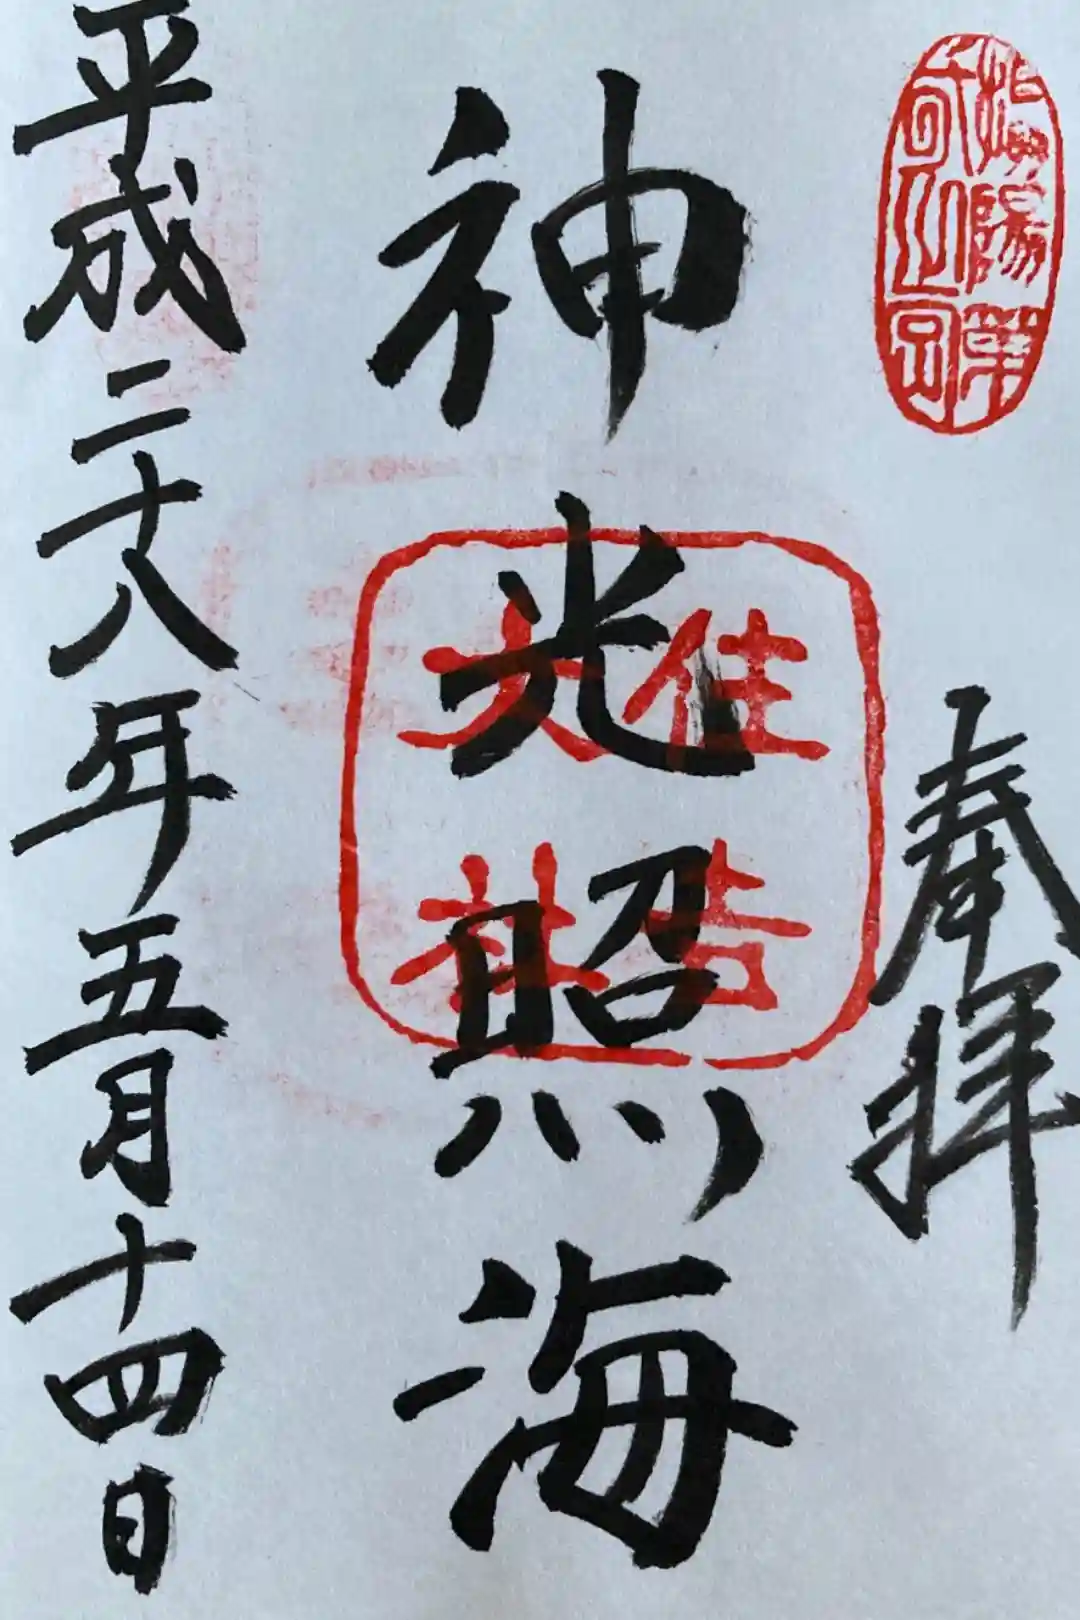 陽第
之宮
奉拝
神光照海
住吉
大社
平成二十八年五月十四日